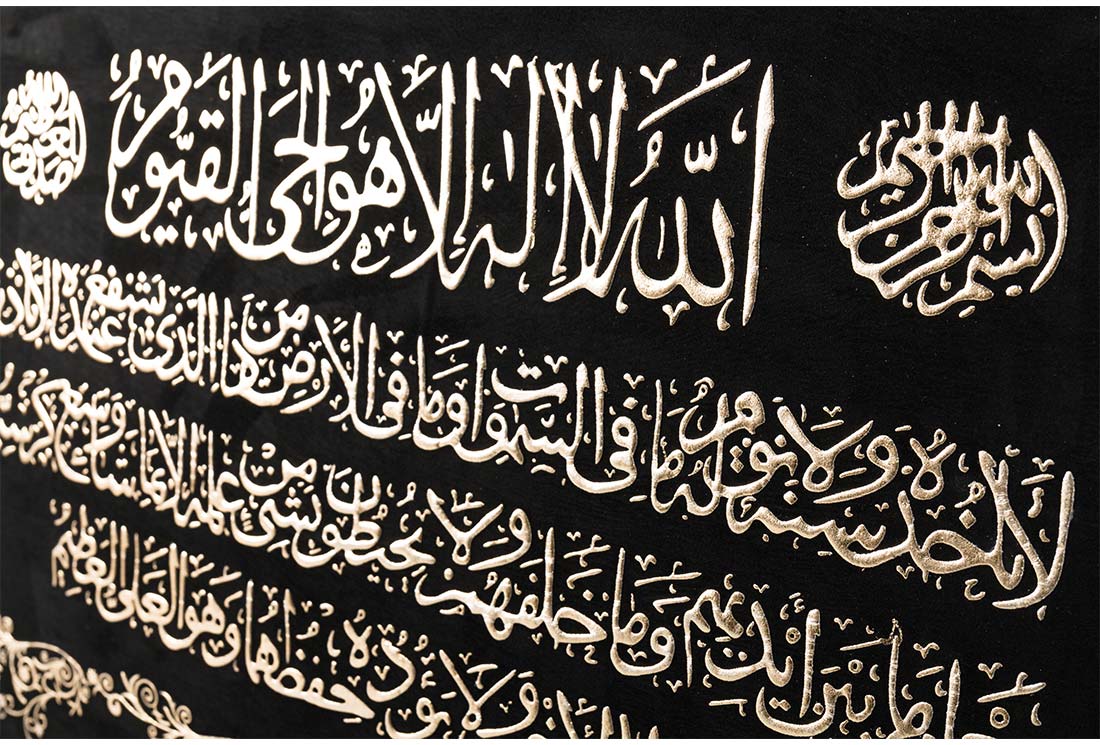 بسم الله الرحمن الرحيم
الله لا إله إلا هو الحي القيوم
صدق الله العظيم
لا تأخذه سنة ولا نوم له ما في السموات وما في الأرض من ذا الذي يشفع عنده إلا
ما بين أيديهم وما خلفهم ولا يحيطون بشئ من علمه إلا بما شاء وسع
ولا يؤده حفظهما وهو العلي العظيم